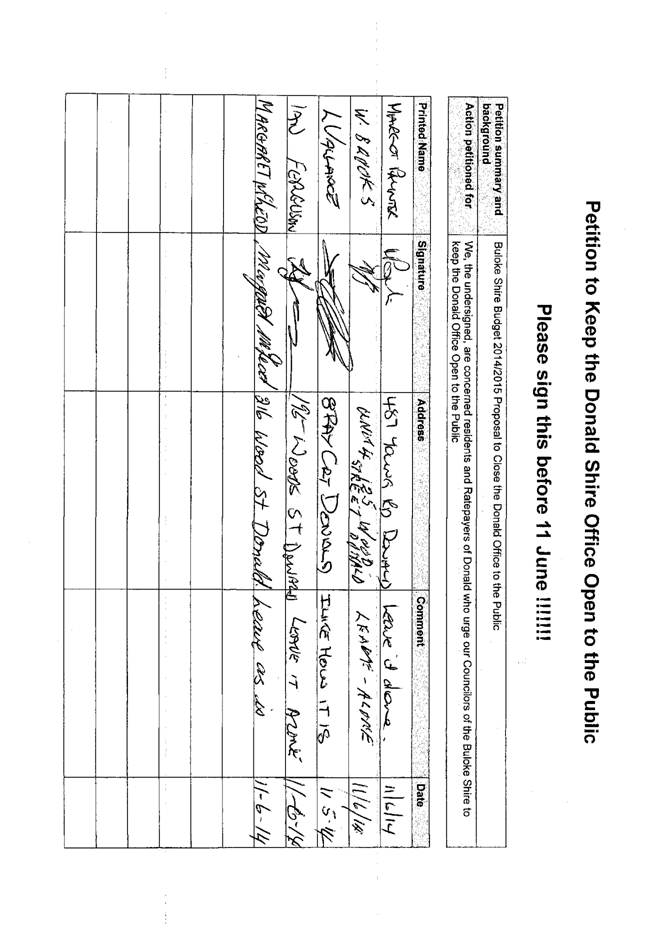 Petition to Keep the Donald Shire Office Open to the Public
Please sign this before 11 June !!!!!!!
Petition summary and background
Buloke Shire Budget 2014/2015 Proposal to Close the Donald Office to the Public
Action petitioned for
We, the undersigned, are concerned residents and Ratepayers of Donald who urge our Councilors of the Buloke Shire to
keep the Donald Office Open to the Public
Printed Name Signature Address Comment Date
MARGOT 487 Young Rd DONALD Leave it alone. 11/6/14
W. BROOKS UNIT 4 125 WOOD STREET DONALD LEAVE - ALONE 11/6/14
L VALLANCE 8 RAY CRT DONALD I LIKE HOW IT IS 11.5.14
IAN FERGUSON WOODS ST DONALD LEAVE IT ALONE 11-6-14
MARGARET McLEOD, Margaret McLeod 216 Wood St Donald. Leave as is 11-6-14